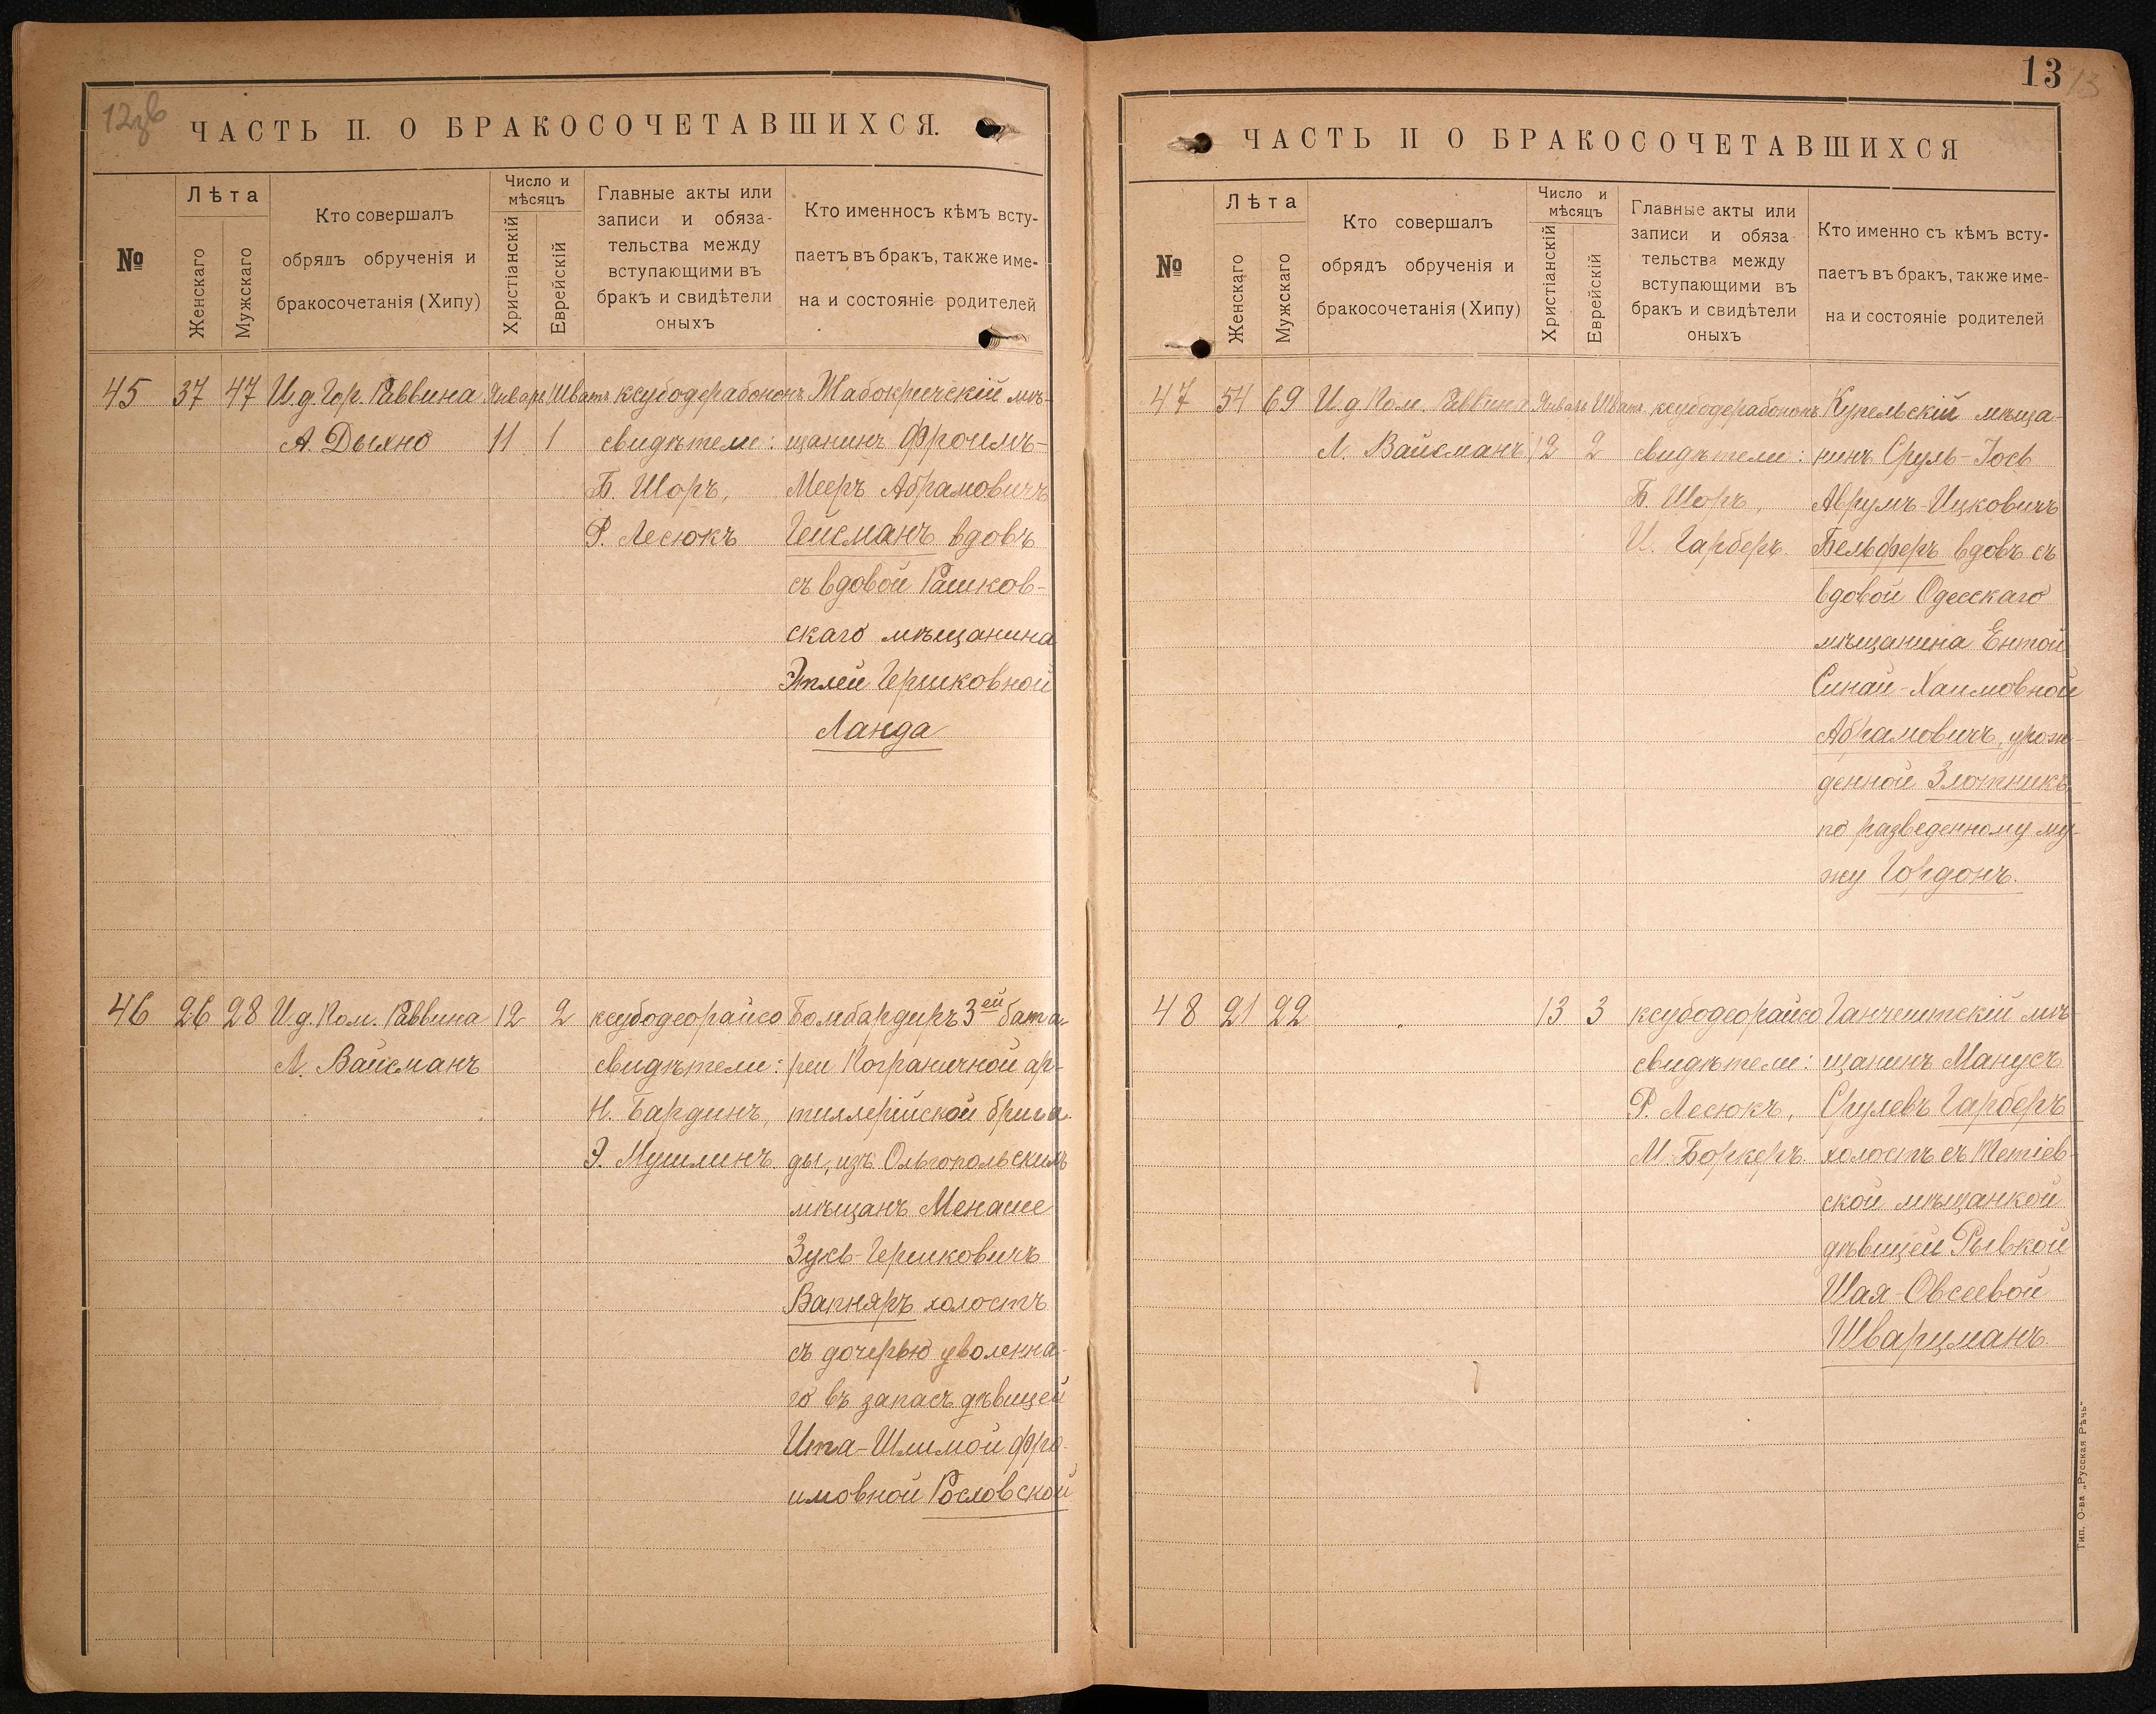 12зв
ЧАСТЬ II. О БРАКОСОЧЕТАВШИХСЯ.
№
Лѣта
Женскаго
Мужскаго
Кто совершалъ
обрядъ обрученія и
бракосочетанія (Хипу)
Число и
мѣсяцъ
Христіанскій
Еврейскій
Главные акты или
записи и обяза-
тельства между
вступающими въ
бракъ и свидѣтели
оныхъ
Кто именносъ кѣмъ всту-
паетъ въ бракъ, также име-
на и состояніе родителей
45 37 47 И.д. Гор. Раввина Январь Шватъ ксубодерабононъ Жабокричскій мѣ-
А. Дыхно 11 1 свидѣтели: щанинъ Фроимъ-
Б. Шоръ, Мееръ Абрамовичъ
Р. Лесюкъ Гейсманъ вдовъ
съ вдовой Рашков-
скаго мѣщанина
Этлей Гершковной
Ланда
46 26 28 И.д. Пом. Раввина 12 2 ксубодеорайсо Бомбардиръ 3ей бата-
Л. Вайсманъ свидѣтели: реи Пограничной ар-
Н. Бардинъ, тиллерійской брига-
Э. Мушлинъ. ды, изъ Ольгопольскихъ
мѣщанъ Менаше
Зусь-Гершковичъ
Вапняръ холостъ
съ дочерью уволенна-
го въ запасъ дѣвицей
Ита-Шлимой Фро-
имовной Рословской
13 13
ЧАСТЬ II О БРАКОСОЧЕТАВШИХСЯ
№
Лѣта
Женскаго
Мужскаго
Кто совершалъ
обрядъ обрученія и
бракосочетанія (Хипу)
Число и
мѣсяцъ
Христіанскій
Еврейскій
Главные акты или
записи и обяза
тельства между
вступающими въ
бракъ и свидѣтели
оныхъ
Кто именно съ кѣмъ всту-
паетъ въ бракъ, также име-
на и состояніе родителей
47 54 69 И.д. Пом. Раввина Январь Шватъ ксубодерабононъ Купельскій мѣща-
Л. Вайсманъ 12 2 свидѣтели: нинъ Сруль-Іось
Б. Шоръ, Аврумъ-Ицковичъ
И. Гарберъ. Бельферъ вдовъ съ
вдовой Одесскаго
мѣщанина Ентой
Синай-Хаимовной
Абрамовичъ, урож-
денной Злотникъ,
по разведенному му-
жу Гордонъ.
48 21 22 " 13 3 ксубодеорайсо Ганчештскій мѣ-
свидѣтели: щанинъ Манусъ
Р. Лесюкъ, Срулевъ Гарберъ
М. Боркеръ. холостъ съ Тетіев-
ской мѣщанкой
дѣвицей Рывкой
Шая-Овсеевой
Шварцманъ.
Тип. О-ва „Русская Рѣчь"